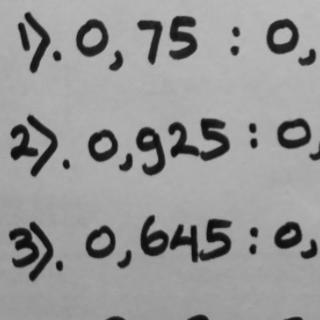 1). 0,75 : 0,
2). 0,925 : 0,
3). 0,645 : 0,